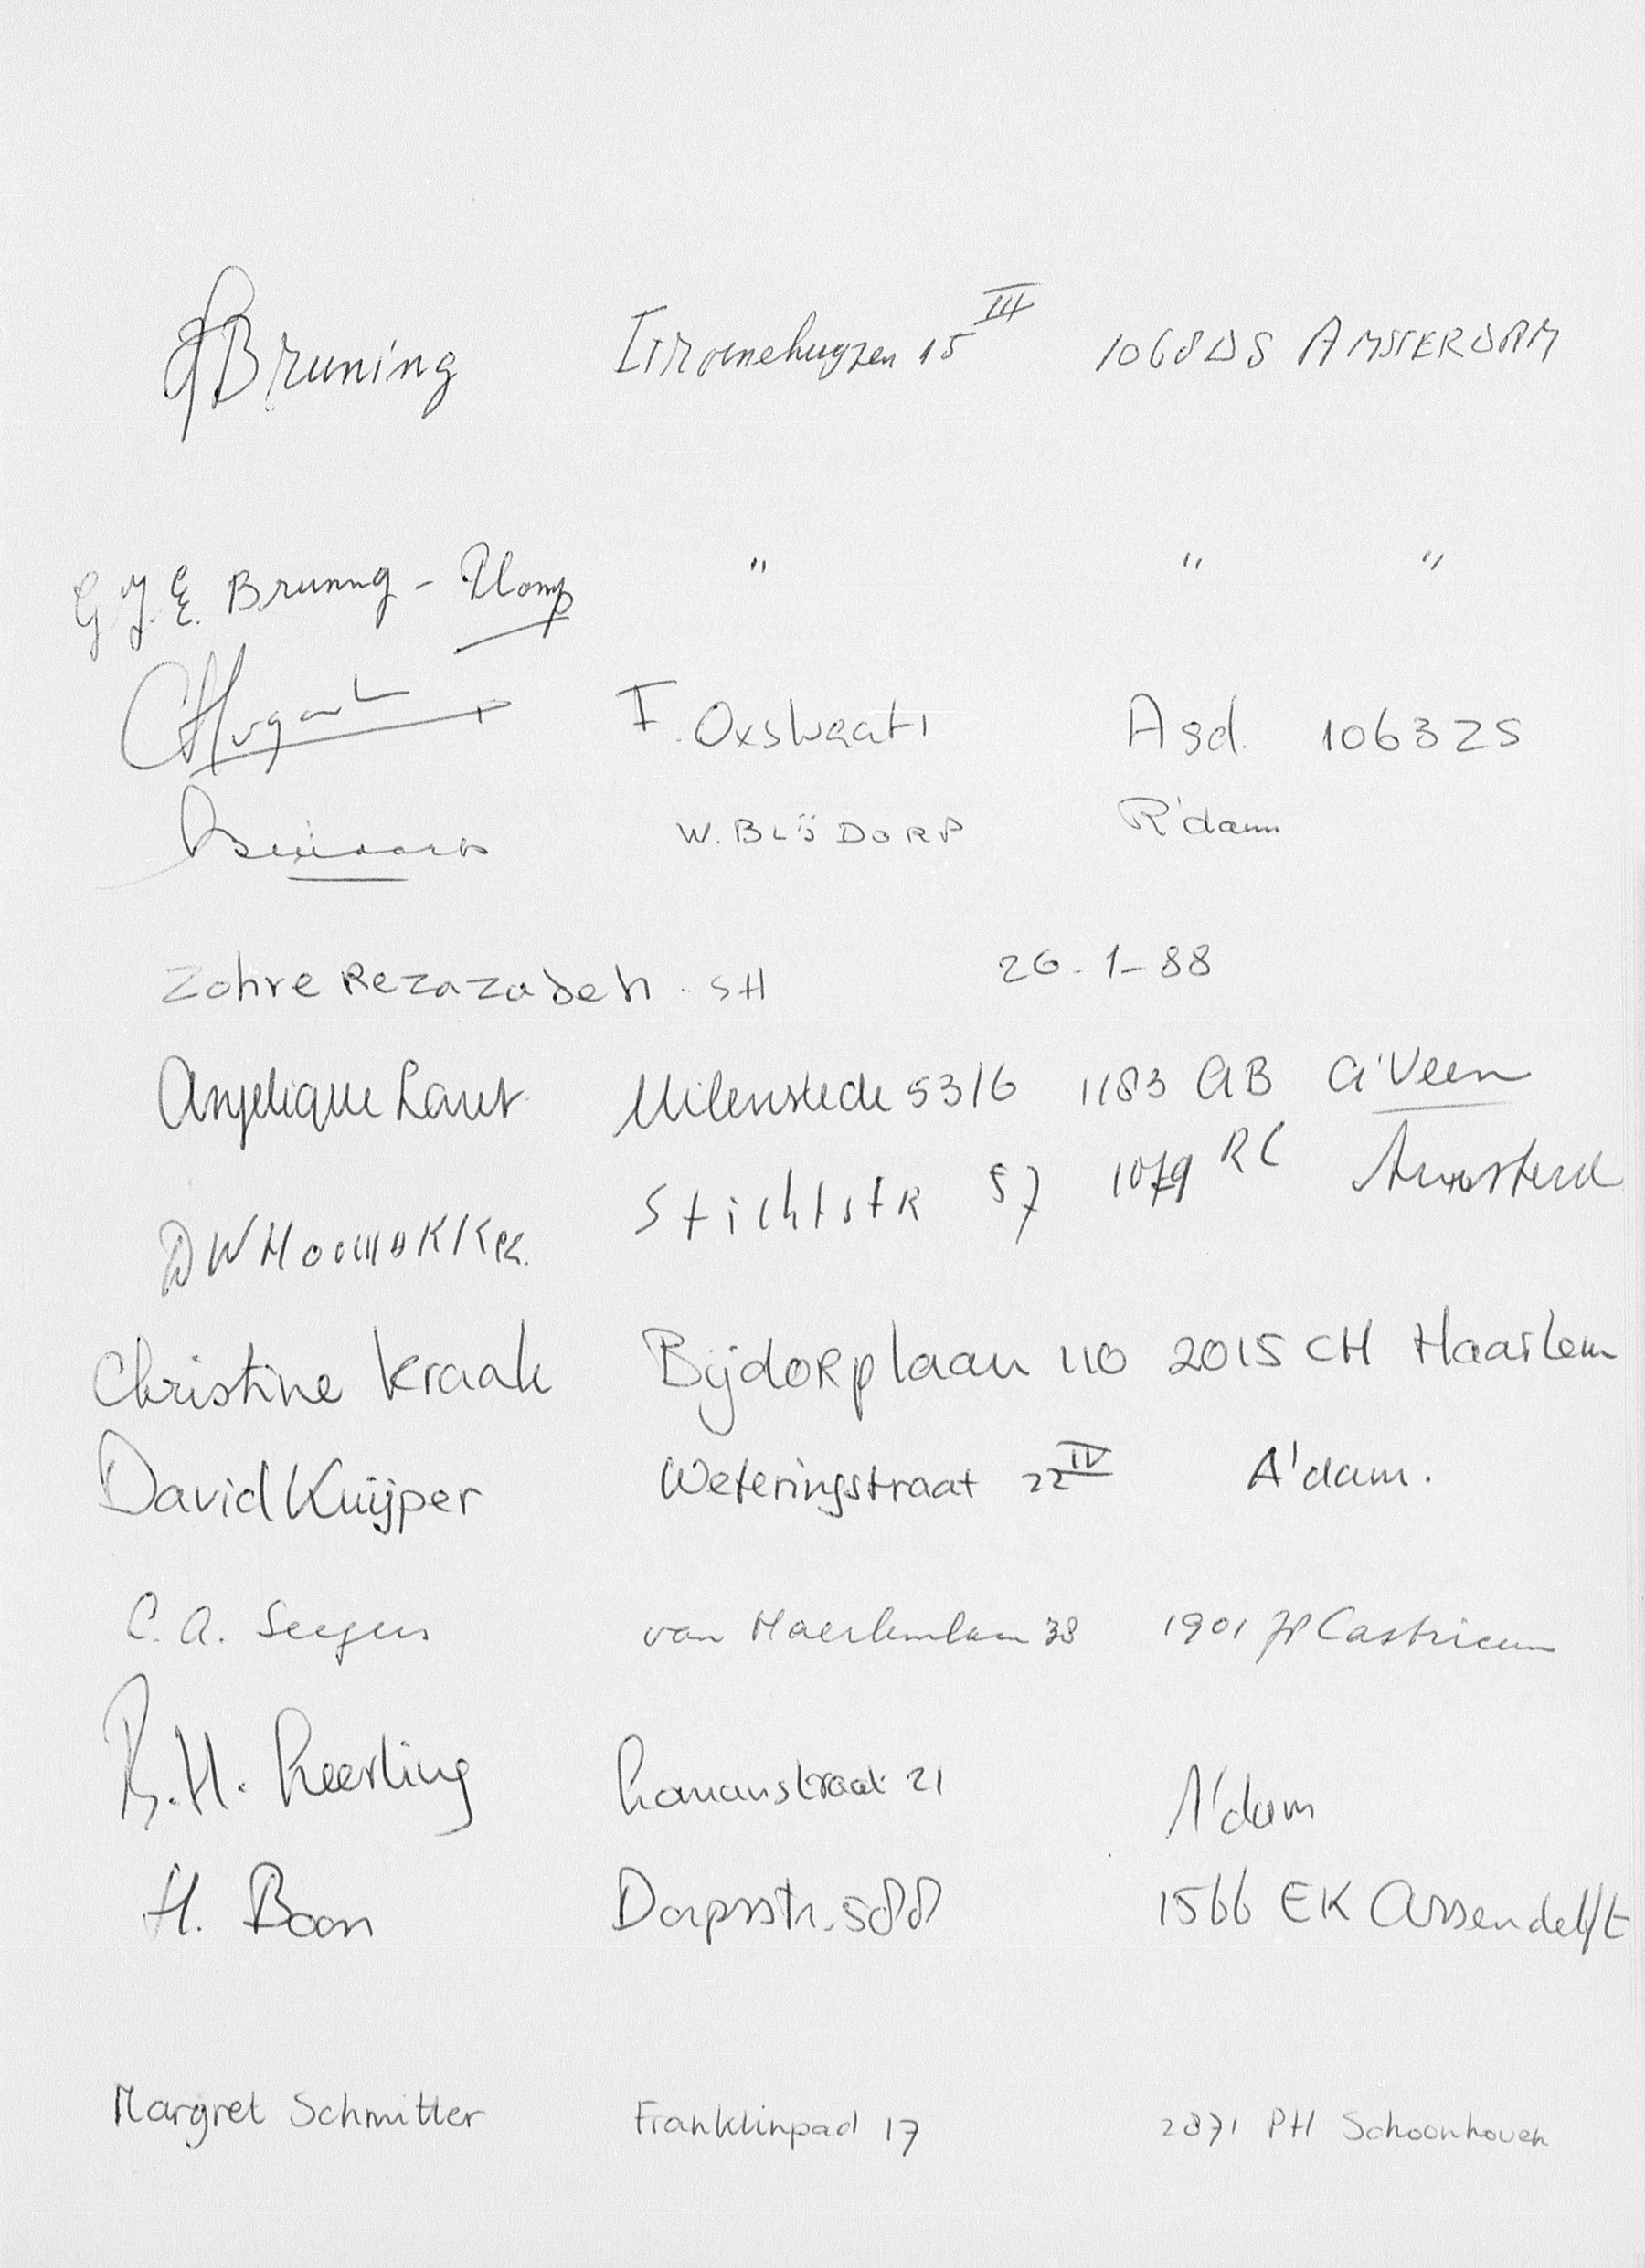 Bruning 15 III 1068 DS AMSTERDAM
G J. E. Bruning - Plomp " " "
F. Oxstraat 1 Asd. 1063 ZS
W. BLIJDORP R'dam
Zohre Rezazadeh. SH 26-1-88
Angelique Laret Milenstede 5316 1183 AB A'Veen
Stichtstr 57 1079 RC Amsterd
DW
Christine Kraak Bijdorplaan 110 2015 CH Haarlem
David Kuijper Weteringstraat 22 IV A'dam.
C. A. Seegers van Haerlemlaan 38 1901 JP Castricum
B. H. Leerling Lomanstraat 21 A'dam
H. Boon Dorpsstr. 588 1566 EK Assendelft
Margret Schmitter Franklinpad 17 2871 PH Schoonhoven